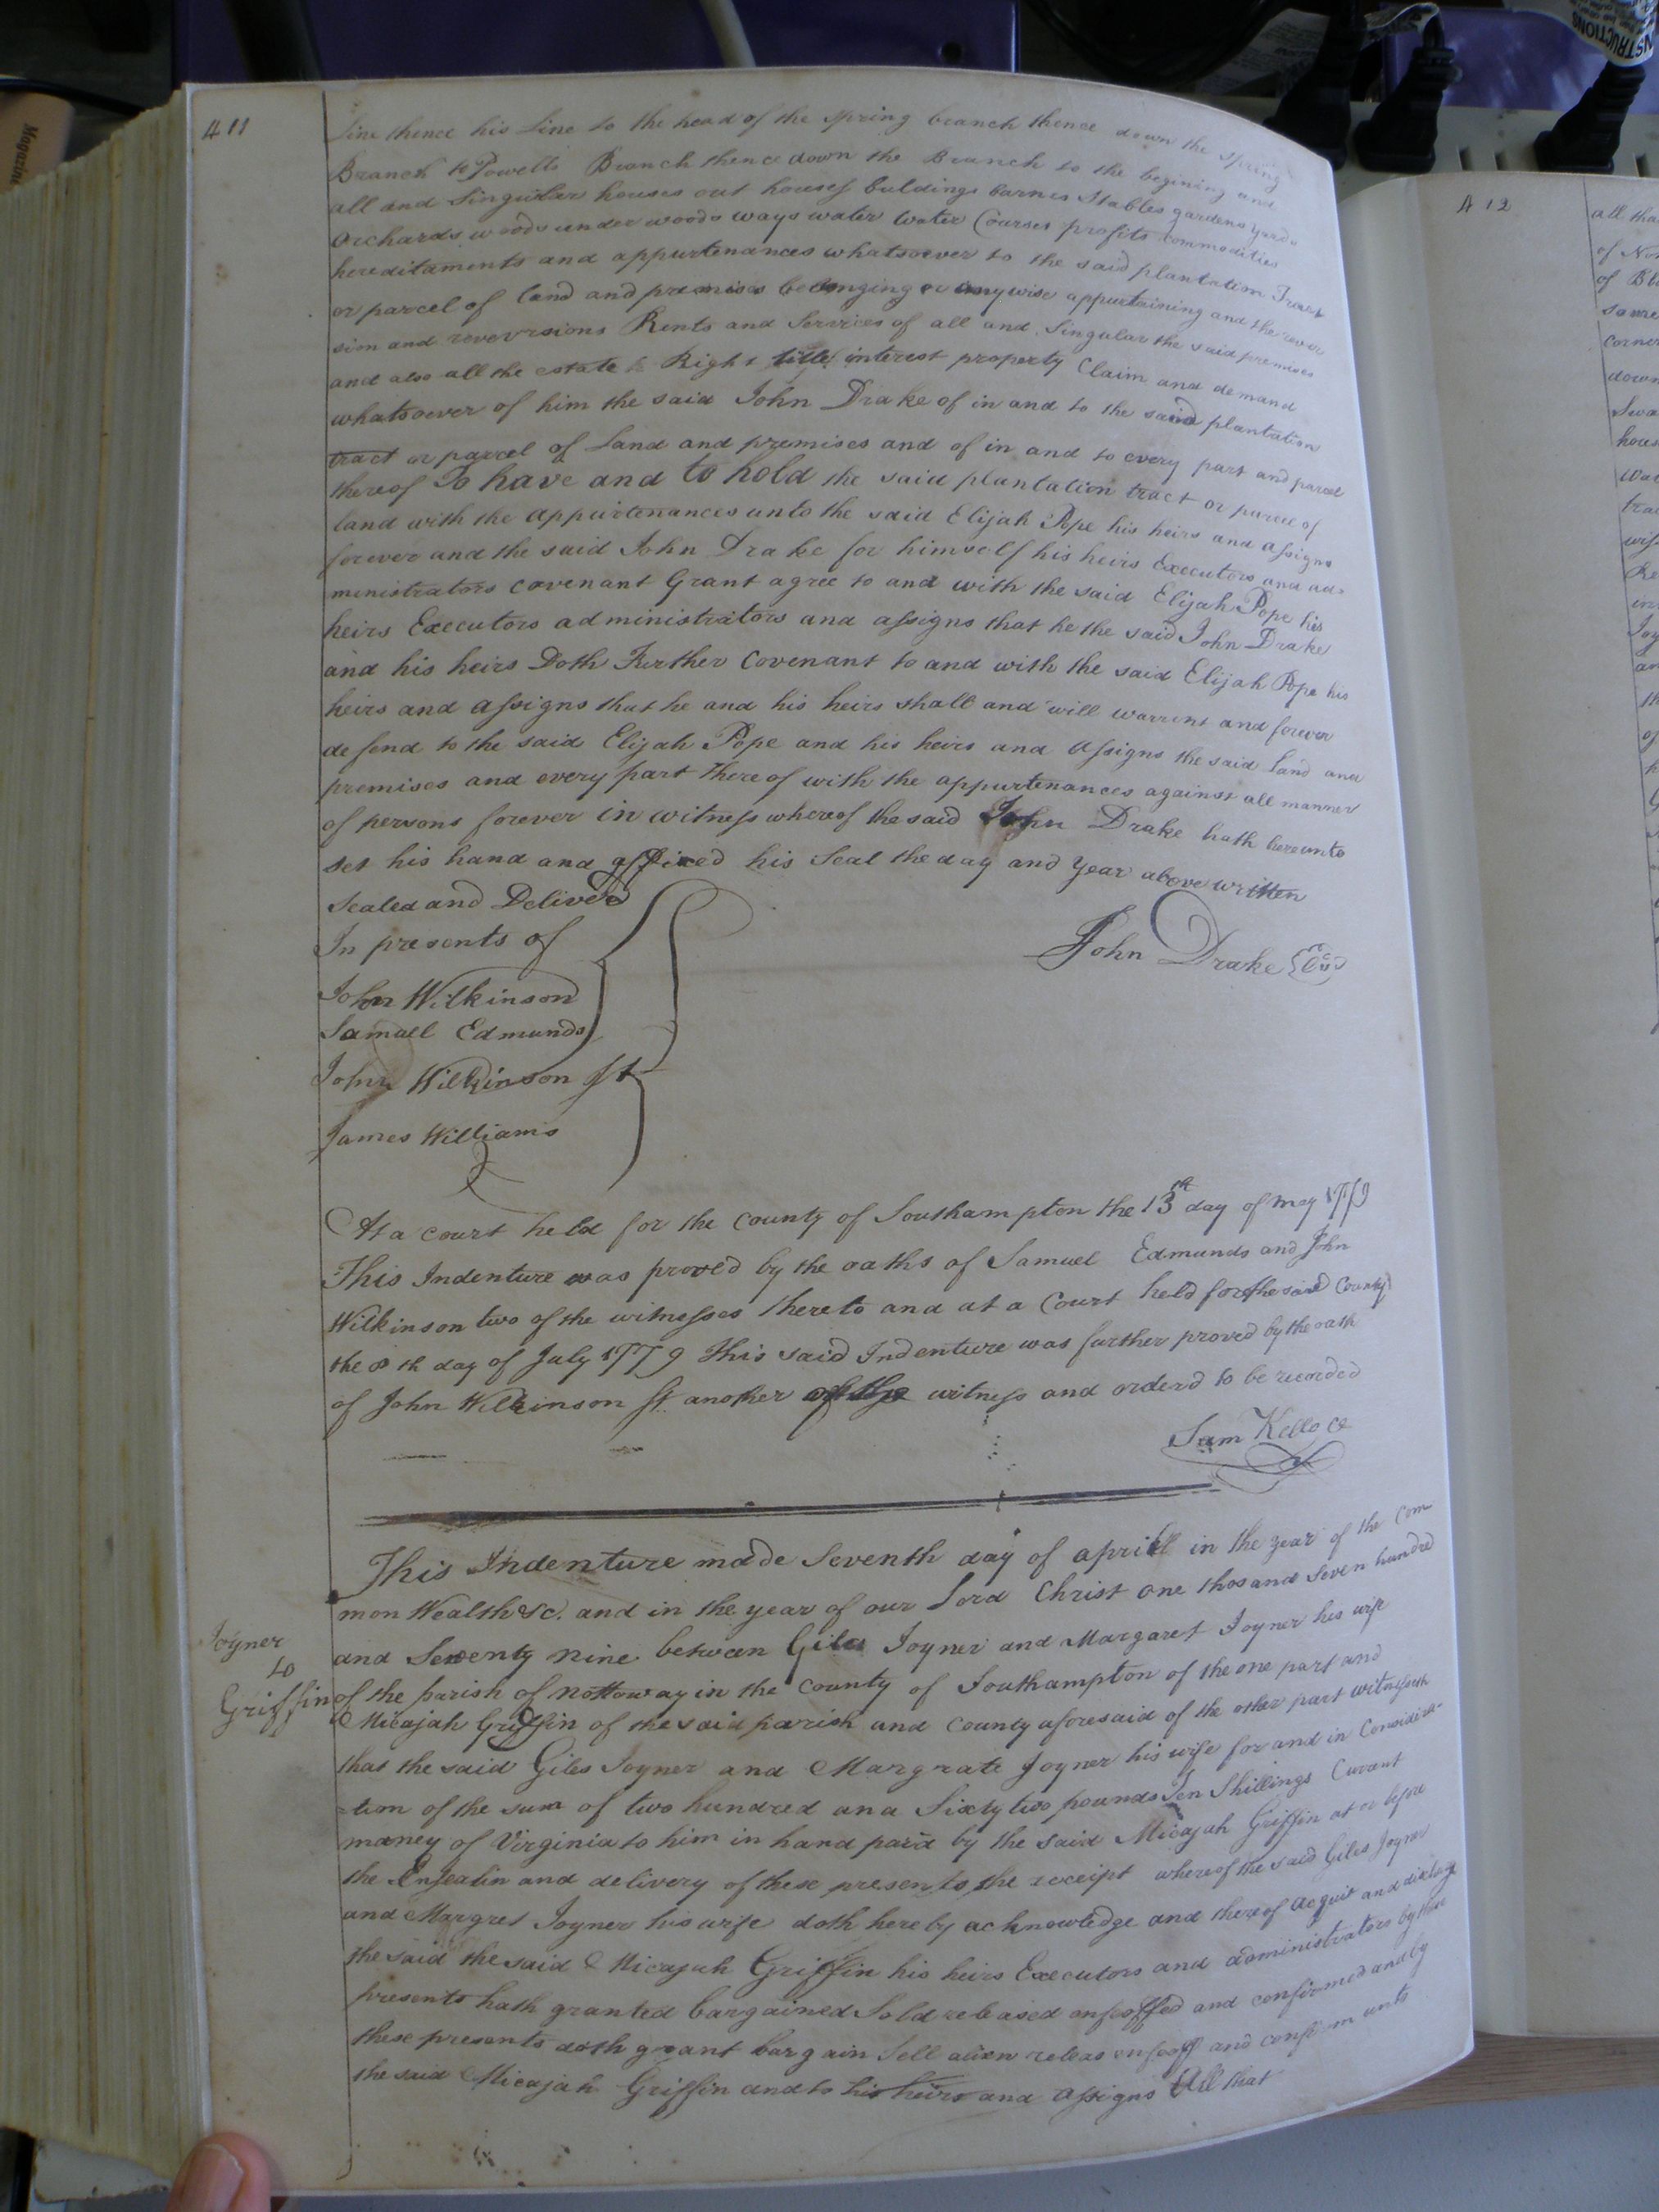 411
line thence his Line to the head of the Spring branch thence down the Spring
Branch to Powells Branch thence down the Branch to the begining and
all and Singular houses out houses buldings barnes Stables gardens yards
Orchards woods under woods ways water Water Courses profits commodities
hereditaments and appurtenances whatsoever to the said plantation Tract
or parcel of land and premises belonging or anywise appurtaining and the rever
sion and reversions Rents and Services of all and Singular the said premises
and also all the estate Right title interest property Claim and demand
whatsoever of him the said John Drake of in and to the said plantation
tract or parcel of Land and premises and of in and to every part and parcel
thereof To have and to hold the said plantation tract or parcel of
land with the Appurtenances unto the said Elijah Pope his heirs and assigns
forever and the said John Drake for himself his heirs Executors and ad=
ministrators covenant Grant agree to and with the said Elijah Pope his
heirs Executors administrators and assigns that he the said John Drake
and his heirs Doth Further Covenant to and with the said Elijah Pope his
heirs and assigns that he and his heirs shall and will warrent and forever
defend to the said Elijah Pope and his heirs and assigns the said land and
premises and every part thereof with the appurtenances against all manner
of persons forever in witness whereof the said John Drake hath hereunto
set his hand and affixed his Seal the day and Year above written
Sealed and Deliverd
In presents of
John Drake
John Wilkinson
Samuel Edmunds
John Wilkinson
James Williams
At a court held for the county of Southampton the 13th day of may 1779
This Indenture was proved by the oaths of Samuel Edmunds and John
Wilkinson two of the witnesses thereto and at a Court held for the said County
the 8th day of July 1779 This said Indenture was further proved by the oath
of John Wilkinson another witness and orderd to be recorded
Sam Kello
This Indenture made Seventh day of aprill in the year of the Com
mon Wealth &c. and in the year of our Lord Christ one thosand Seven hundred
Joyner
to
Griffin
and Seventy nine betwen Giles Joyner and Margaret Joyner his wife
of the parish of nottoway in the County of Southampton of the one part and
Micajah Griffin of the said parish and County aforesaid of the other part witnesseth
that the said Giles Joyner and Margrate Joyner his wife for and in Considera-
=tion of the sum of two hundred and Sixty two pounds Ten Shillings Curant
money of Virginia to him in hand paid by the said Micajah Griffin at or before
the Ensealin and delivery of these presents the receipt whereof the said Giles Joyner
and Margret Joyner his wife doth hereby acknowledge and thereof acquit and
the said the said Micajah Griffin his heirs Executors and administrators by these
presents hath granted bargained Sold released enfeoffed and confirmed and by
these presents doth grant bargain Sell alien releas enfeoff and confirm unto
the said Micajah Griffin and to his heirs and assigns All that
412
all tha
of No
of
same
corner
down
hous
tra